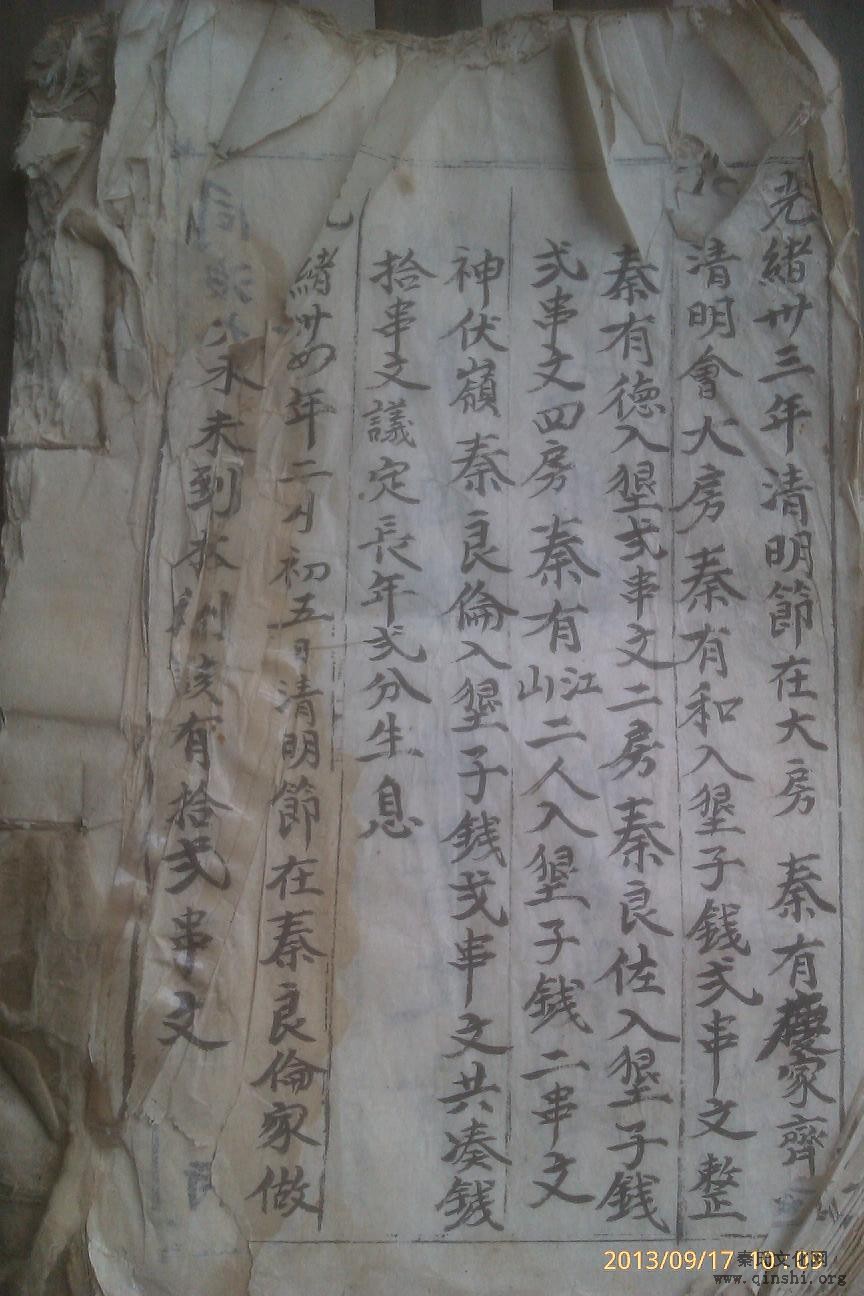 光緒卅三年清明節在大房秦有慶家齊
清明會大房秦有和入墾子錢弍串文整
秦有德入墾弍串文二房秦良佐入墾子錢
弍串文四房秦有江山二人入墾子錢二串文
神伏嶺秦良倫入墾子錢弍串文共凑錢
拾串文議定長年弍分生息
緒卅四年二月初五日清明節在秦良倫家做
永未到 有拾弍串文
2013/09/17 10:09
秦氏文化网
www.qinshi.org